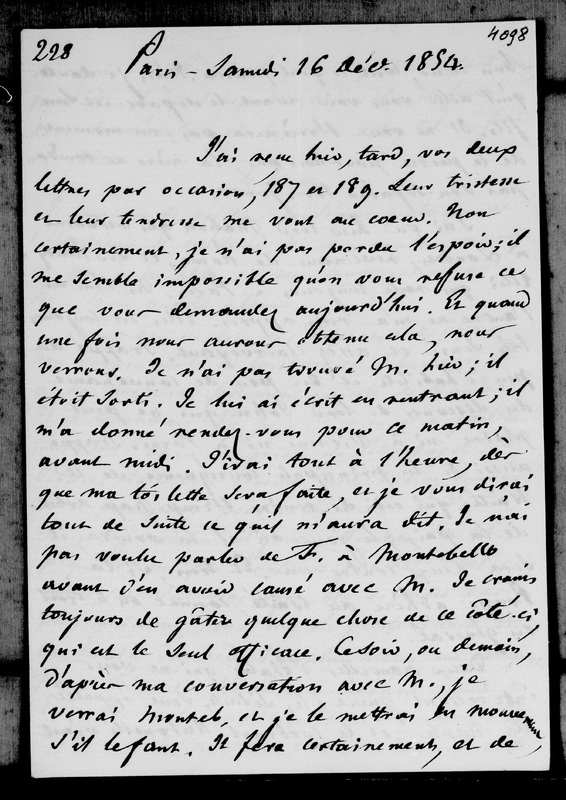 228
4098
Paris - Samedi 16 déc. 1854.
J'ai reçu hier, tard, vos deux
lettres par occasion, 187 et 189. Leur tristesse
et leur tendresse me vont au coeur. Non
certainement, je n'ai pas perdu l'espoir ; il
me semble impossible qu'on vous refuse ce
que vous demandez aujourd'hui. Et quand
une fois nous aurons obtenu cela, nous
verrons. Je n'ai pas trouvé M. hier ; il
étoit sorti. Je lui ai écrit en rentrant ; il
m'a donné rendez-vous pour ce matin,
avant midi. J'irai tout à l'heure, dès
que ma toilette sera faite, et je vous dirai
tout de suite ce qu'il m'aura dit. Je n'ai
pas voulu parler de à Montebello
avant d'en avoir causé avec M. Je crains
toujours de gâter quelque chose de ce côté-ci,
qui est le seul efficace. Ce soir, ou demain,
d'après ma conversation avec M., je
verrai Monteb. et je le mettrai en mouvement,
s'il le faut. Il fera certainement, et de